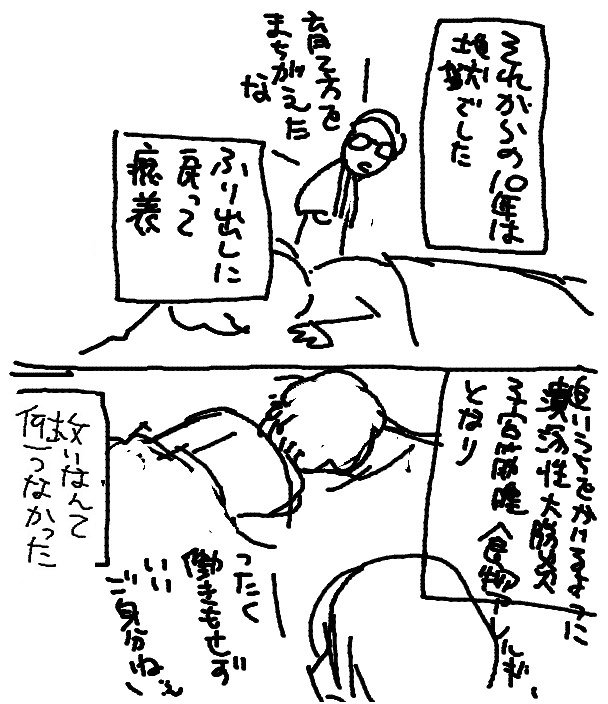 それからの10年は
地獄でした
育て方を
まちがえた
な
ふり出しに
戻って
療養
追いうちをかけるように
潰瘍性大腸炎
子宮筋腫、食物アレルギー
となり
ったく
働きもせず
いい
ご身分ねぇ
救いなんて
何一つなかった